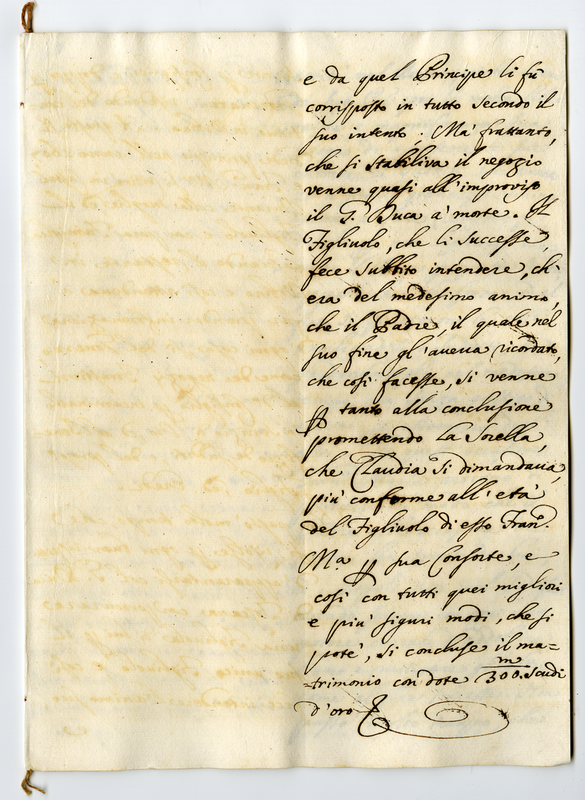 e da quel Principe li fù
corrisposto in tutto secondo il
suo intento. Mà frattanto,
che si stabiliva il negozio
venne quasi all'improviso
il G. Duca à morte. Il
Figliuolo, che li successe,
fece subbito intendere, ch'
era del medesimo animo,
che il Padre, il quale nel
suo fine gl'aueua ricordato,
che così facesse, si venne
tanto alla conclusione
promettendo la Sorella,
che Claudia si dimandaua,
più conforme all'età
del Figliuolo di esso Fran.
Ma sua Consorte, e
così con tutti quei migliori
e più siguri modi, che si
potè, si concluse il ma=
trimonio con dote 300. m scudi
d'oro